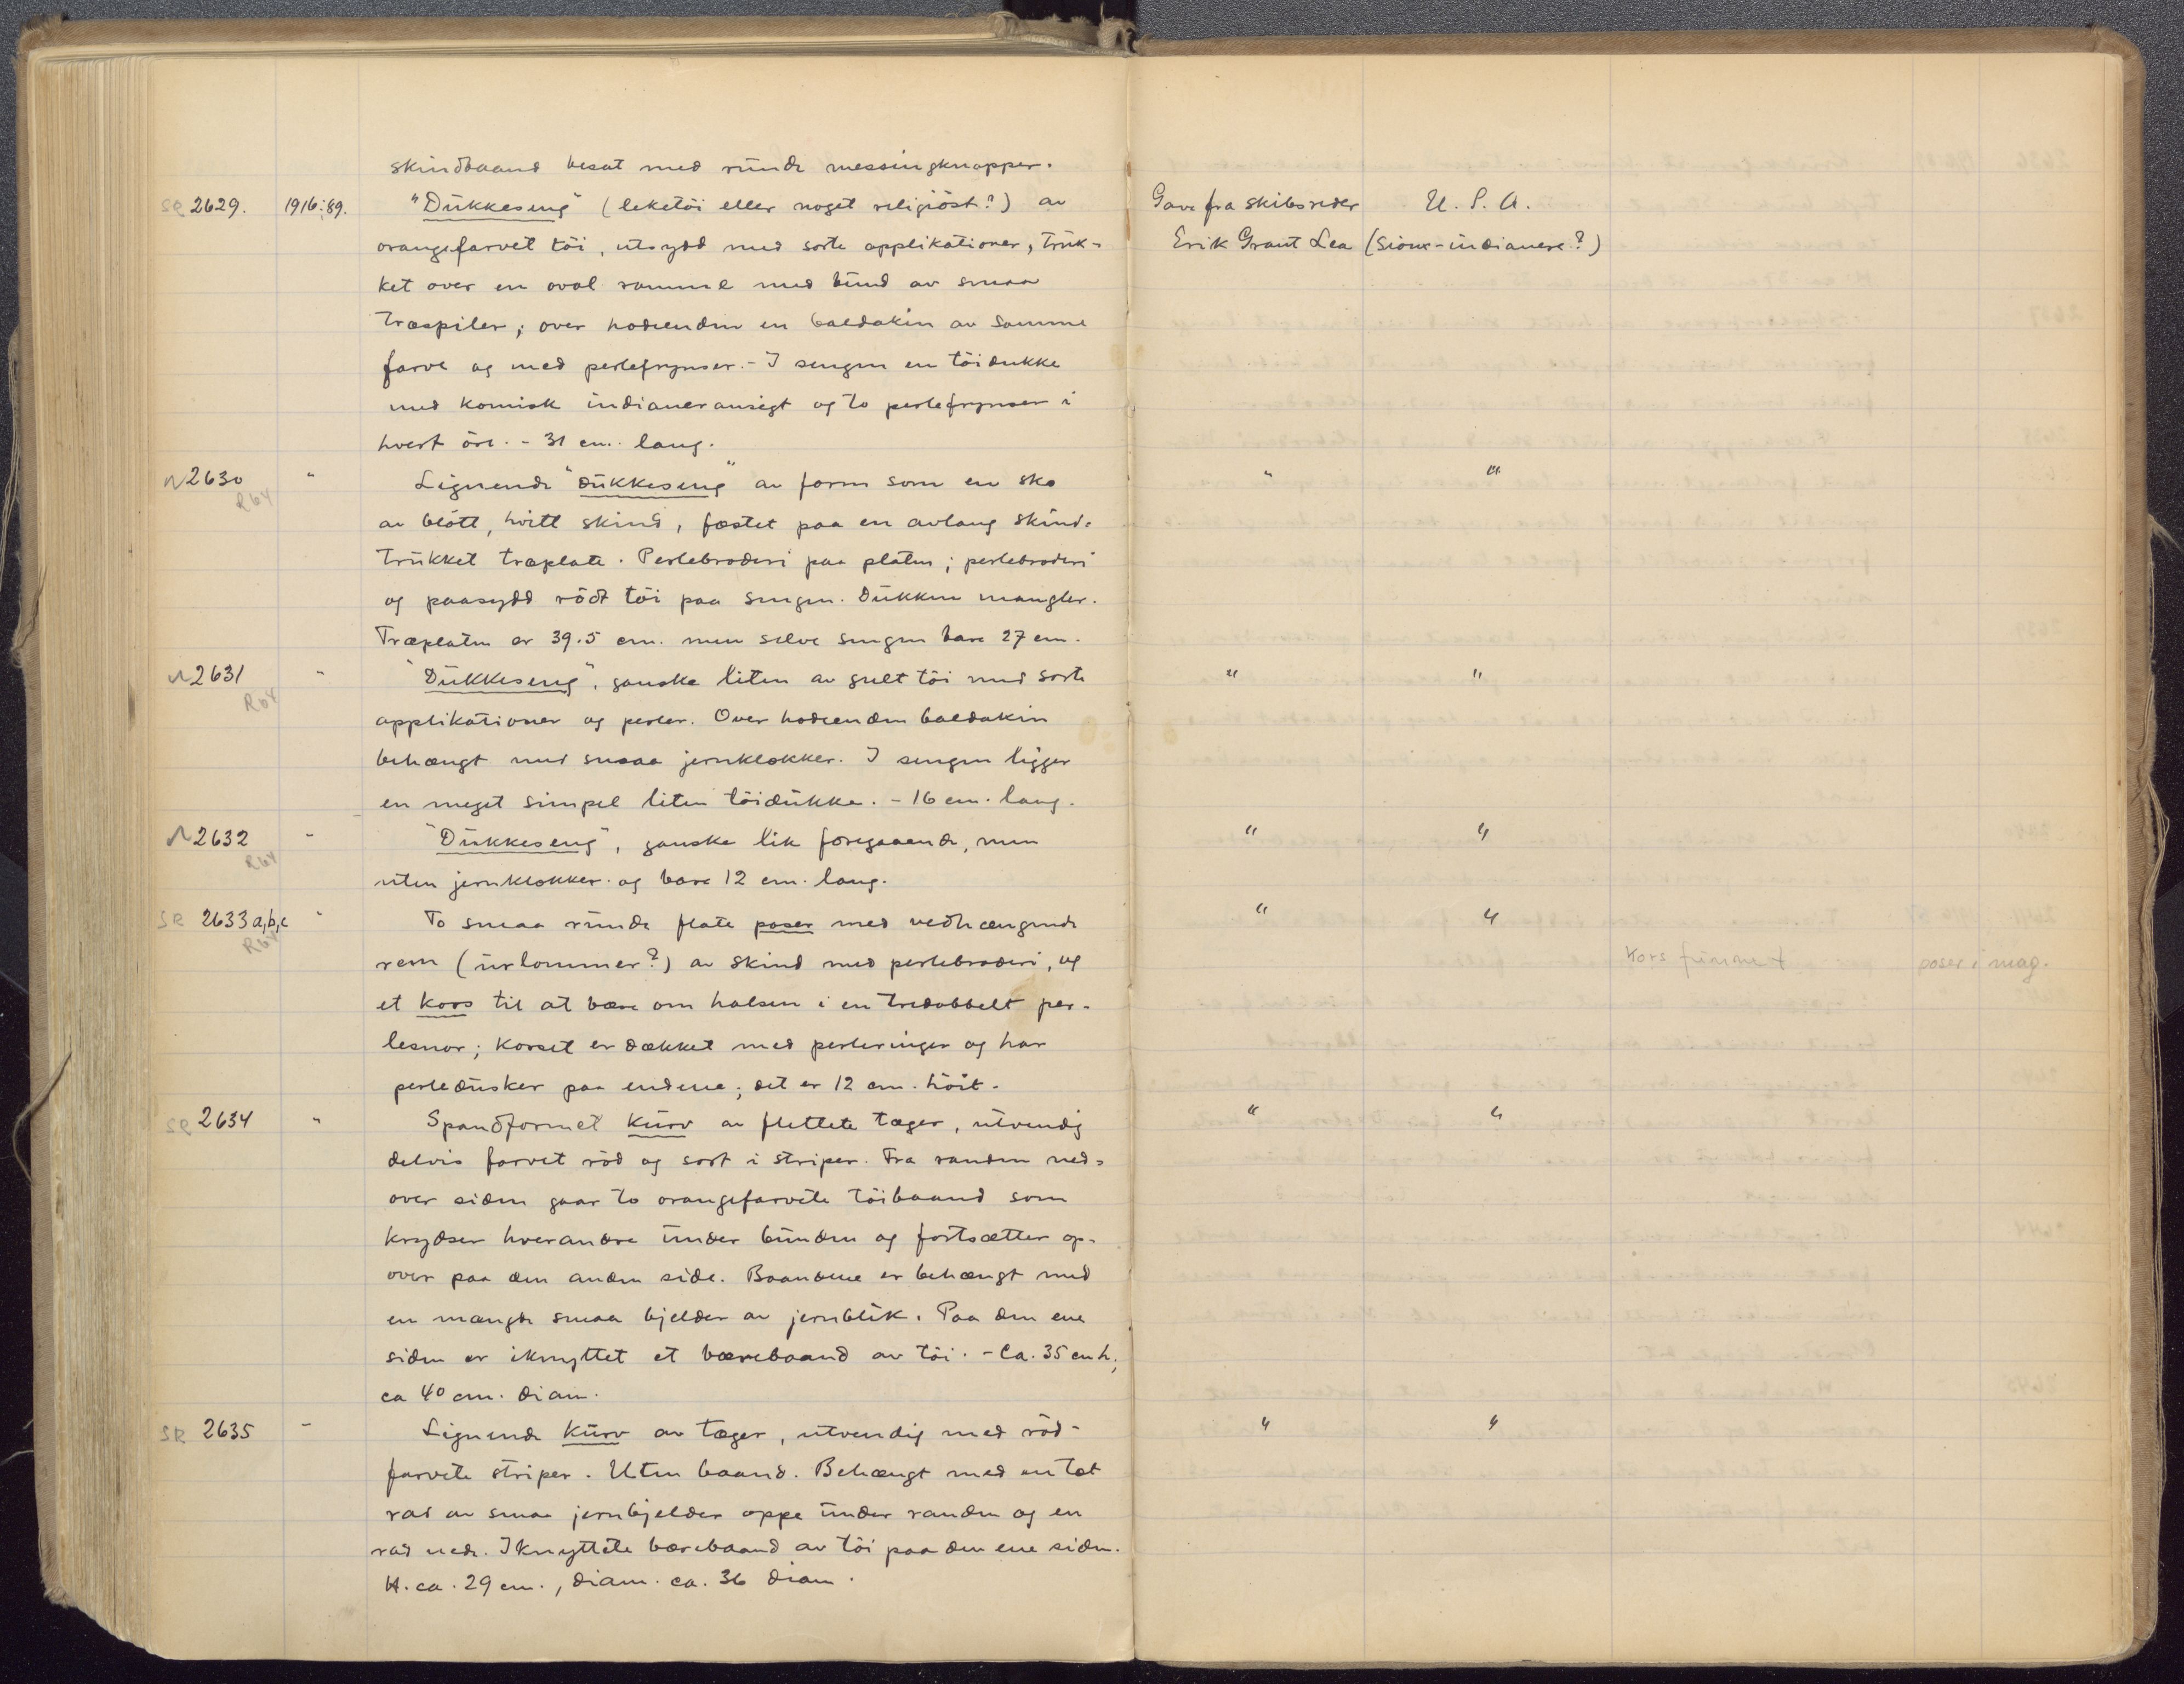 skindbaand besat med runde messingknapper.
SR 2629. 1916:89. "Dukkeseng" (leketöi eller noget religiöst?) av Gave fra skibsreder U.S.A.
orangefarvet töi, utsydd med sorte applikationer, truk- Erik Grant Lea (Sioux-indianere?)
ket over en oval ramme med bund av smaa
træspiler; over hodeenden en baldakin av samme
farve og med perlefrynser. - I sengen en töidukke
med komisk indianeransigt og to perlefrynser i
hvert öre. - 31 cm. lang.
N 2630 " Lignende "dukkeseng" av form som en sko " "
R64
av blött, hvitt skind, fæstet paa en avlang skind-
trukket træplate. Perlebroderi paa platen; perlebroderi
og paasydd rödt töi paa sengen. Dukken mangler.
Træplaten er 39.5 cm. men selve sengen bare 27 cm.
N 2631 " "Dukkeseng", ganske liten av gult töi med sorte " "
R64
applikationer og perler. Over hodeenden baldakin
behængt med smaa jernklokker. I sengen ligger
en meget simpel liten töidukke. - 16 cm. lang.
N 2632 " "Dukkeseng", ganske lik foregaaende, men " "
R64
uten jernklokker og bare 12 cm. lang.
SR 2633 a,b,c " To smaa runde flate poser med vedhængende " "
R64
rem (urlommer?) av skind med perlebroderi, og Kors funnet poser i mag.
et kors til at bære om halsen i en tredobbelt per-
lesnor; korset er dækket med perleringer og har
perledusker paa endene; det er 12 cm. höit.
SR 2634 " Spandformet kurv av flettete tæger, utvendig " "
delvis farvet röd og sort i striper. Fra randen ned-
over siden gaar to orangefarvete töibaand som
krydser hverandre under bunden og fortsætter op-
over paa den anden side. Baandene er behængt med
en mængde smaa bjelder av jernblik. Paa den ene
siden er iknyttet et bærebaand av töi. - Ca. 35 cm h.,
ca 40 cm. diam.
SR 2635 " Lignende kurv av tæger, utvendig med röd- " "
farvete striper. Uten baand. Behængt med en tæt
rad av smaa jernbjelder oppe under randen og en
rad nede. Iknyttete bærebaand av töi paa den ene siden.
H. ca. 29 cm., diam. ca. 36 diam.